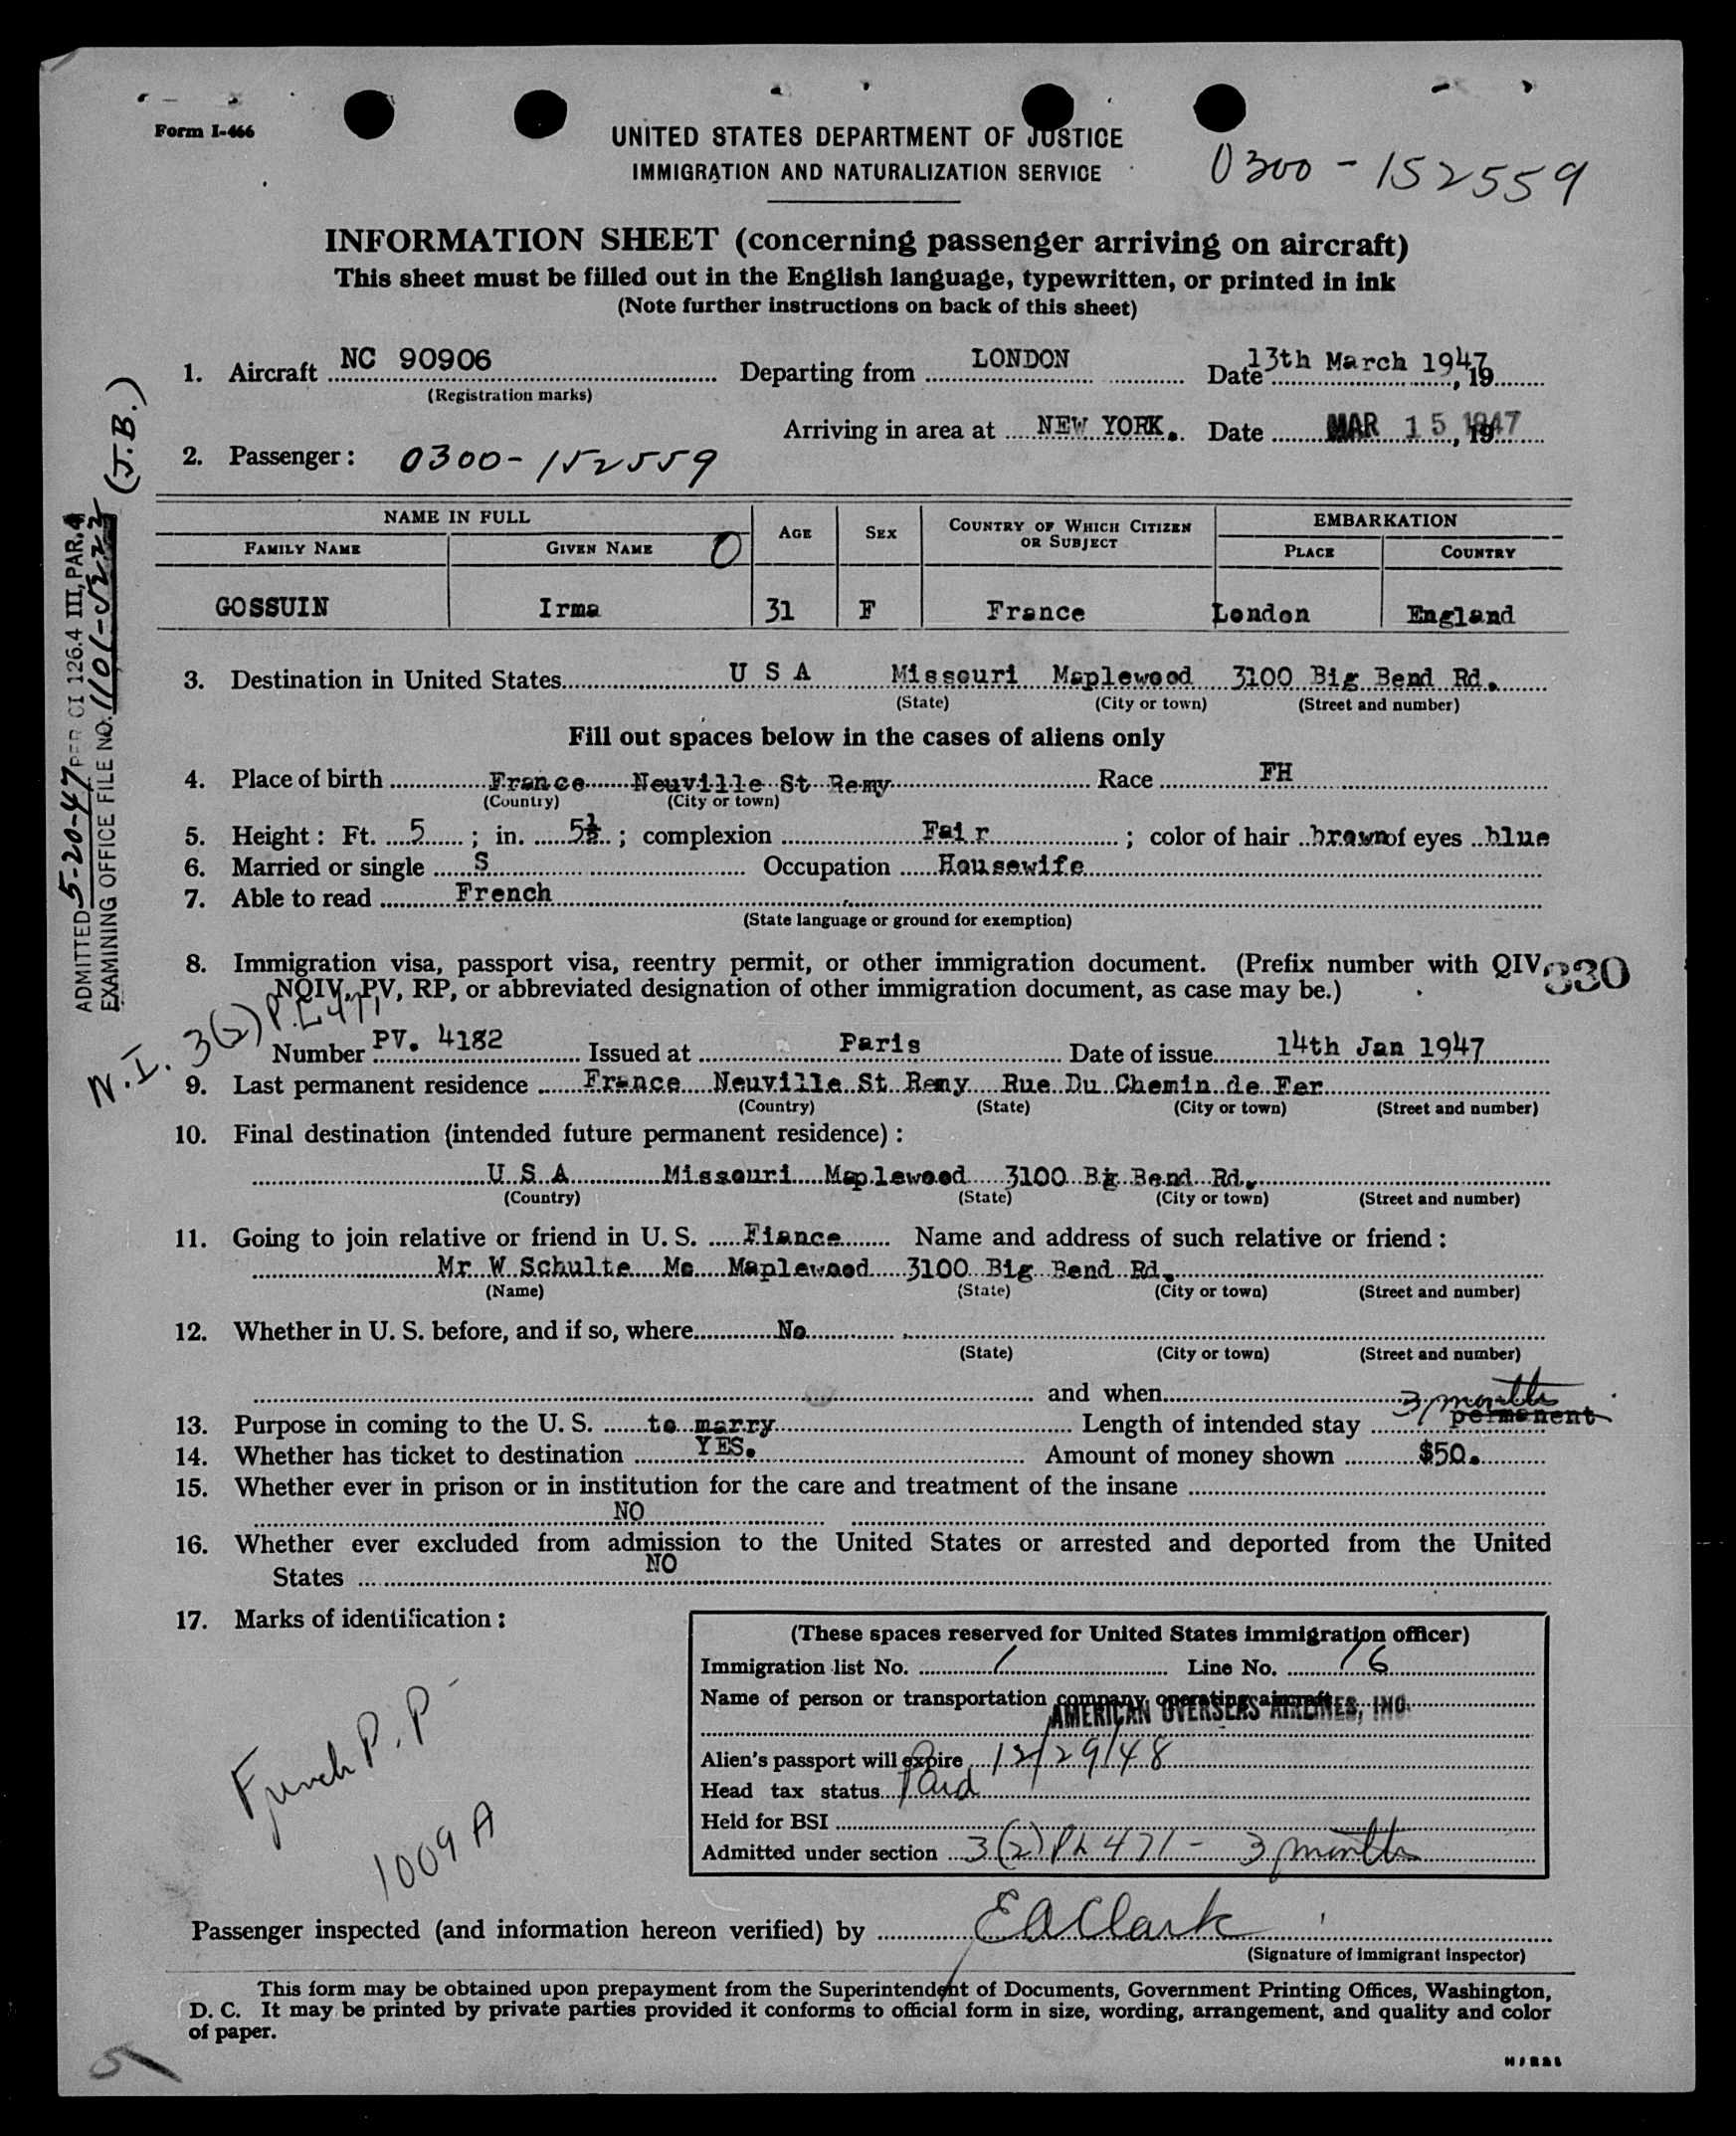 Form I-466
UNITED STATES DEPARTMENT OF JUSTICE
IMMIGRATION AND NATURALIZATION SERVICE
0300-152559
INFORMATION SHEET (concerning passenger arriving on aircraft)
This sheet must be filled out in the English language, typewritten, or printed in ink
(Note further instructions on back of this sheet)
1. Aircraft NC 90906 Departing from LONDON Date 13th March 1947, 19
(Registration marks)
Arriving in area at NEW YORK. Date MAR 15 1947, 19
2. Passenger: 0300-152559
NAME IN FULL AGE SEX COUNTRY OF WHICH CITIZEN OR SUBJECT EMBARKATION
FAMILY NAME GIVEN NAME O PLACE COUNTRY
GOSSUIN Irma 31 F France London England
3. Destination in United States U S A Missouri Maplewood 3100 Big Bend Rd.
(State) (City or town) (Street and number)
Fill out spaces below in the cases of aliens only
4. Place of birth France Neuville St Remy Race FH
(Country) (City or town)
5. Height: Ft. 5; in. 5½; complexion Fair; color of hair brown of eyes blue
6. Married or single S Occupation Housewife
7. Able to read French
(State language or ground for exemption)
8. Immigration visa, passport visa, reentry permit, or other immigration document. (Prefix number with QIV,
330
NQIV, PV, RP, or abbreviated designation of other immigration document, as case may be.)
N.I. 3(2) P.L 471
Number PV. 4182 Issued at Paris Date of issue 14th Jan 1947
9. Last permanent residence France Neuville St Remy Rue Du Chemin de Fer
(Country) (State) (City or town) (Street and number)
10. Final destination (intended future permanent residence):
U S A Missouri Maplewood 3100 Big Bend Rd.
(Country) (State) (City or town) (Street and number)
11. Going to join relative or friend in U. S. Fiance Name and address of such relative or friend:
Mr W Schulte Mo Maplewood 3100 Big Bend Rd.
(Name) (State) (City or town) (Street and number)
12. Whether in U. S. before, and if so, where No
(State) (City or town) (Street and number)
and when
3 months
13. Purpose in coming to the U. S. to marry Length of intended stay permanent
14. Whether has ticket to destination YES. Amount of money shown $50.
15. Whether ever in prison or in institution for the care and treatment of the insane
NO
16. Whether ever excluded from admission to the United States or arrested and deported from the United
States NO
17. Marks of identification:
French P.P-
1009 A
(These spaces reserved for United States immigration officer)
Immigration list No. 1 Line No. 16
Name of person or transportation company operating aircraft
AMERICAN OVERSEAS AIRLINES, INC.
Alien's passport will expire 12/29/48
Head tax status Paid
Held for BSI
Admitted under section 3(2) PL 471 - 3 months
Passenger inspected (and information hereon verified) by E A Clark
(Signature of immigrant inspector)
This form may be obtained upon prepayment from the Superintendent of Documents, Government Printing Offices, Washington,
D. C. It may be printed by private parties provided it conforms to official form in size, wording, arrangement, and quality and color
of paper.
5
ADMITTED 5-20-47 PER CI 126.4 III, PAR. 4
EXAMINING OFFICE FILE NO. 1101-5222 (J.B.)